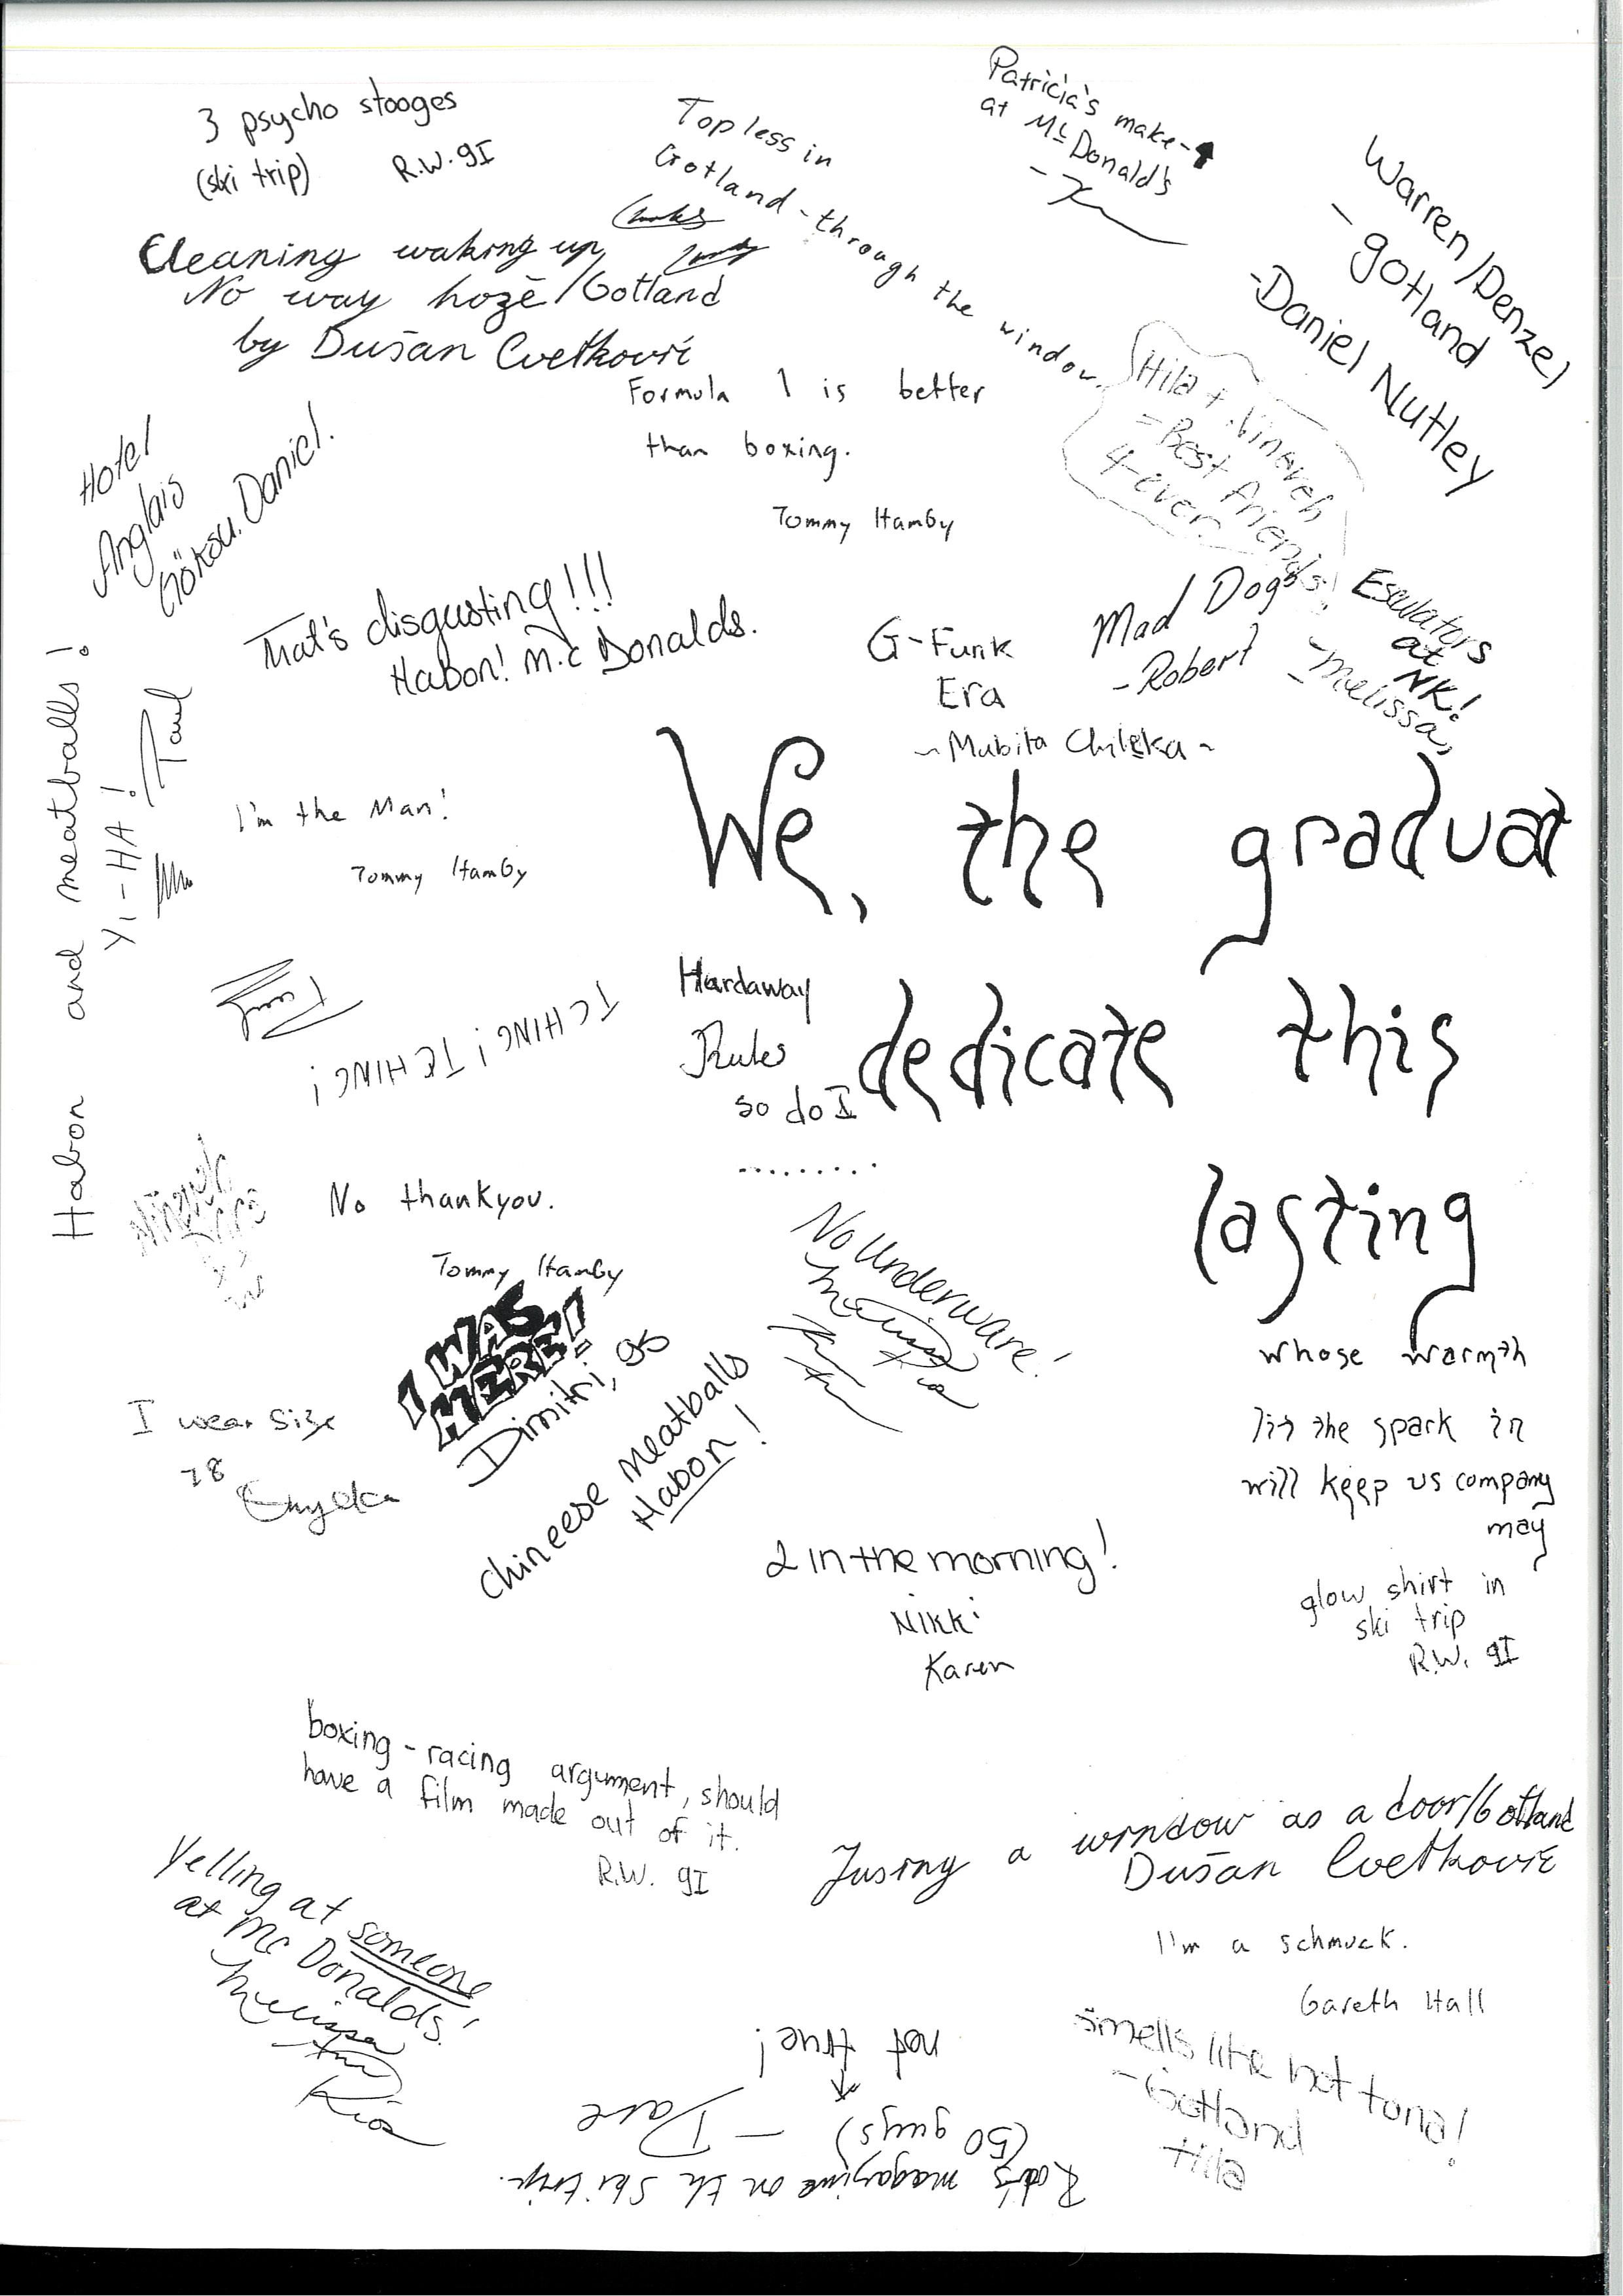 3 psycho stooges
(ski trip) R.W. 9I
Topless in
Gotland - through the window.
Patricia's make-
at McDonald's
Warren/Denzel
- gotland
- Daniel Nutley
Cleaning waking up
No way hozē/Gotland
by Dušan Cvetković
Formula 1 is better
than boxing.
Tommy Hamby
Hila + Nineveh
= Best friends
4-ever.
Hotel
Anglais
Göksu. Daniel.
That's disgusting!!!
Habon! Mc Donalds.
G-Funk
Era
~ Mubita Chileka ~
Mad Dogs
- Robert
Esculators
at
NK!
- Melissa
Habon and meatballs!
Yi-HA!
Paul
I'm the Man!
Tommy Hamby
We, the graduat
dedicate this
lasting
TCHING! TCHING!
Hardaway
Rules
so do I
.........
No thankyou.
Tommy Hamby
I WAS
HERE!
Dimitri, 95
No Underware!
whose warmth
lit the spark in
will keep us company
may
I wear size
78
Chineese Meatballs
Habon!
2 in the morning!
Nikki
Karen
glow shirt in
ski trip
R.W. 9I
boxing - racing argument, should
have a film made out of it.
R.W. 9I
Jusing a window as a door/Gotland
Dušan Cvetković
Yelling at someone
at Mc Donalds!
Melissa
Rios
I'm a schmuck.
Gareth Hall
smells like hot tuna!
- Gotland
Hila
Rob's magazine on the ski trip.
(50 guys)
- Dave
not true!